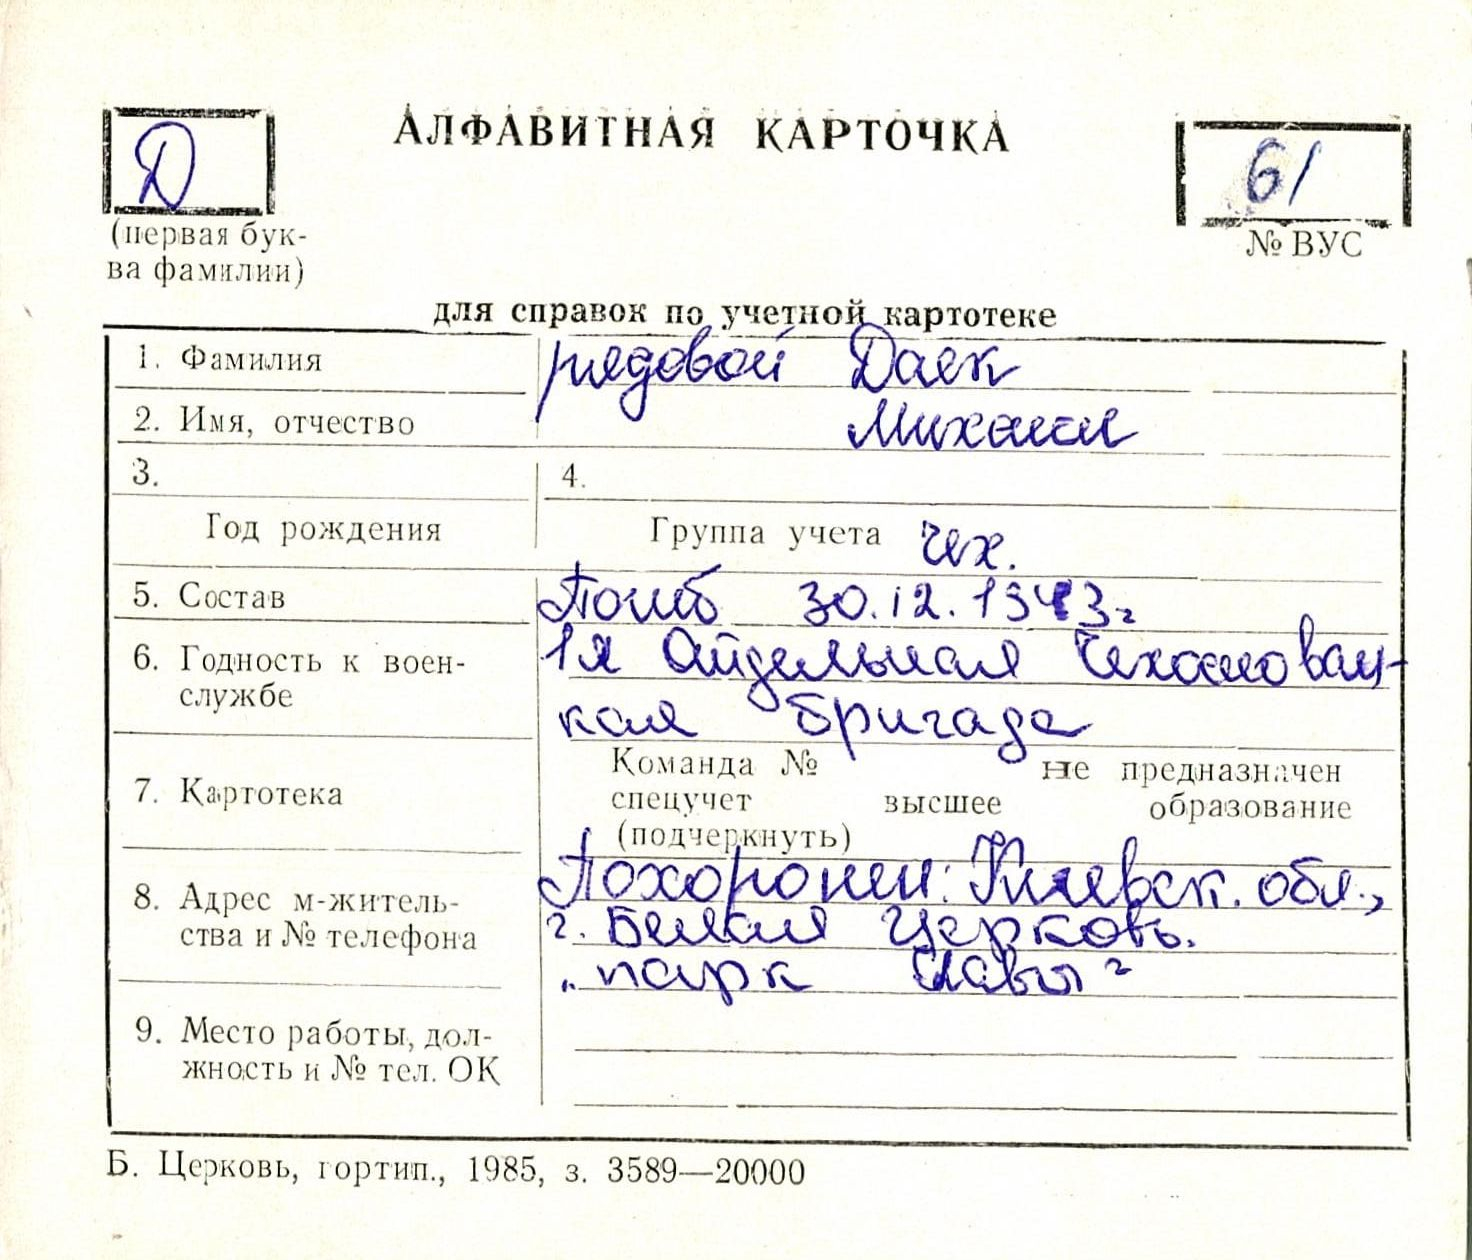 АЛФАВИТНАЯ КАРТОЧКА
Д
61
(первая бук-
ва фамилии)
№ ВУС
для справок по учетной картотеке
1. Фамилия рядовой Даек
2. Имя, отчество Михаил
3. 4.
Год рождения Группа учета чех.
5. Состав Погиб 30.12.1943г
6. Годность к воен- 1я Отдельная Чехословац-
службе кая бригада
7. Картотека
Команда № не предназначен
спецучет высшее образование
(подчеркнуть)
8. Адрес м-житель- Похоронен: Киевск. обл.,
ства и № телефона г. Белая Церковь.
„парк Славы"
9. Место работы, дол-
жность и № тел. ОК
Б. Церковь, гортип., 1985, з. 3589—20000